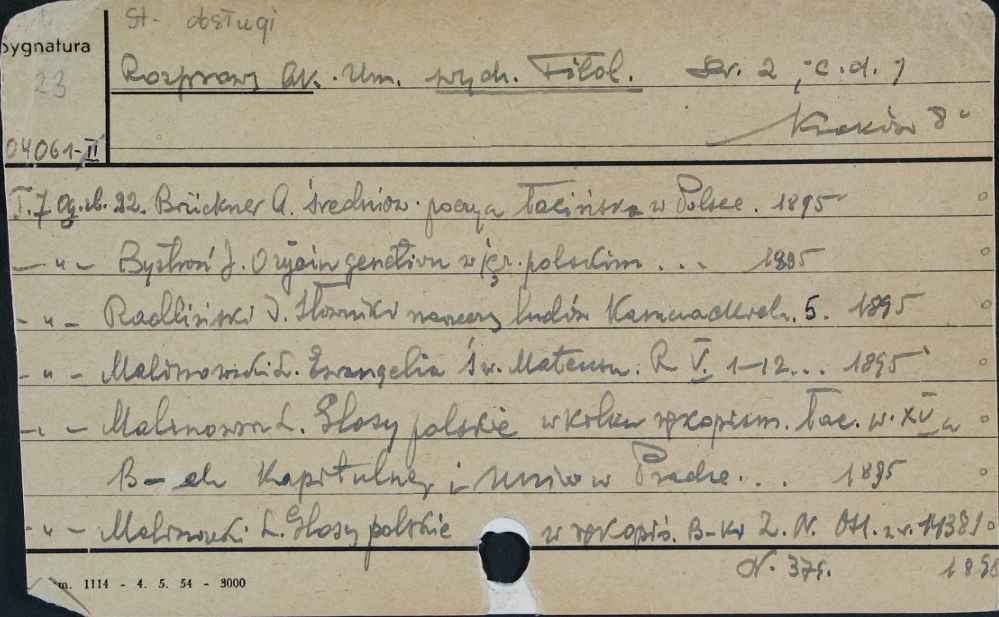 St. obsługi
Sygnatura
23
Rozprawy Ak. Um. wydz. Filol. Ser. 2 /c.d./
Kraków 8°
04061-II
T. 7 Og. zb. 22. Brückner A. Średniow. poezya łacińska w Polsce. 1895
- " - Bystroń J. O użyciu genetivu w jęz. polskim ... 1895
- " - Radliński I. Słowniki narzeczy ludów Kamczackich. 5. 1895
- " - Malinowski L. Ewangelia św. Mateusza. R V. 1-12... 1895
- " - Malinowski L. Glosy polskie w kilku rękopism. łac. w. XV w
B-ch Kapitulnej i Uniw w Pradze... 1895
- " - Malinowski L. Glosy polskie w rękopiś. B-ki Z. N. Oss. nr. 11381
N. 379. 1895
m. 1114 - 4. 5. 54 - 3000